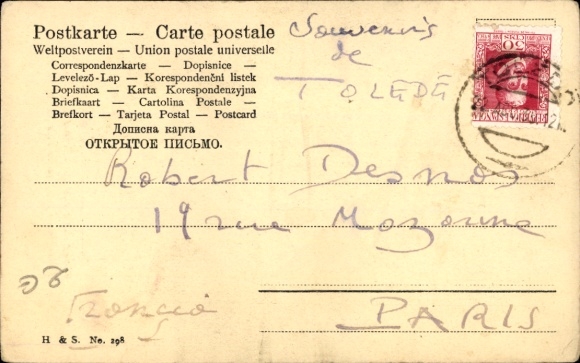 Postkarte — Carte postale
Weltpostverein — Union postale universelle
Correspondenzkarte — Dopisnice —
Levelező-Lap — Korespondenční listek
Dopisnica — Karta Korespondenzyjna
Briefkaart — Cartolina Postale —
Brefkort — Tarjeta Postal — Postcard
Дописна карта
ОТКРЫТОЕ ПИСЬМО.
Souvenirs
de
TOLÈDE
Robert Desnos
19 rue Mazarine
PARIS
Francia
H & S. No. 298
50